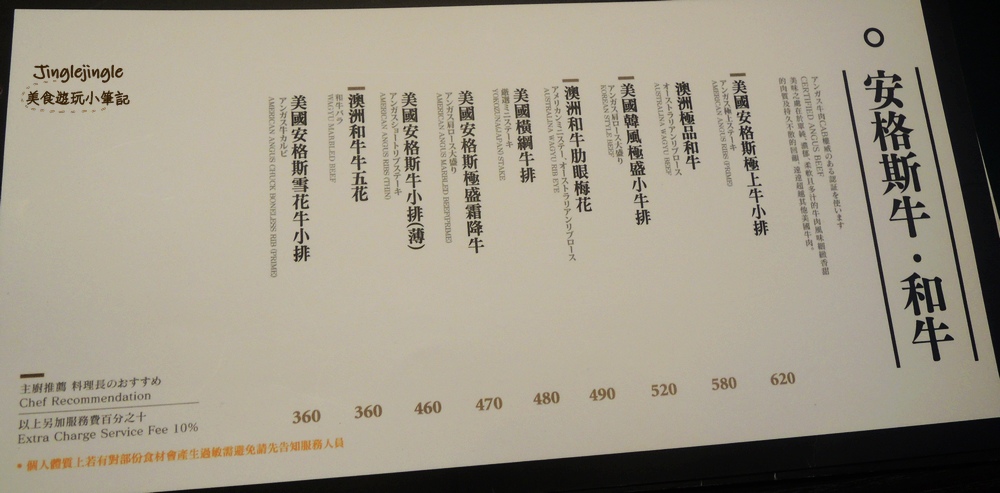 Jinglejingle
美食遊玩小筆記
安格斯牛・和牛
アンガス牛肉CAB権威のある認証を使います
CERTIFIED ANGUS BEEF
美味之處在於單純、濃郁、柔軟且多汁的牛肉風味細緻香甜
的肉質及持久不散的回韻，遠遠超越其他美國牛肉。
美國安格斯極上牛小排
アンガス極上ステーキ
AMERICAN ANGUS RIBS (PRIME)
620
澳洲極品和牛
オーストラリアンリブロース
AUSTRALINA WAGYU BEEF
580
美國韓風極盛小牛排
アンガス肩ロース大盛り
KOREAN STYLE BEEF
520
澳洲和牛肋眼梅花
アメリカンミニステー、オーストラリアンリブロース
AUSTRALINA WAGYU RIB EYE
490
美國橫綱牛排
厳選ミニステーキ
YOKUZUNA(JAPAN) STAKE
480
美國安格斯極盛霜降牛
アンガス肩ロース大盛り
AMERICAN ANGUS MARBLED BEEF(PRIME)
470
美國安格斯牛小排(薄)
アンガスショートリブステーキ
AMERICAN ANGUS RIBS (THIN)
460
澳洲和牛牛五花
和牛バラ
WAGYU MARBLED BEEF
360
美國安格斯雪花牛小排
アンガス牛カルビ
AMERICAN ANGUS CHUCK BONELESS RIB (PRIME)
360
主廚推薦 料理長のおすすめ
Chef Recommendation
以上另加服務費百分之十
Extra Charge Service Fee 10%
• 個人體質上若有對部份食材會產生過敏需避免請先告知服務人員